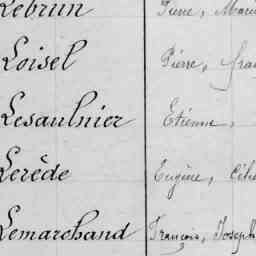 Lebrun Pierre, Marie
Loisel Pierre,
Lesaulnier Etienne,
Lerède Eugène,
Lemarchand François, Joseph